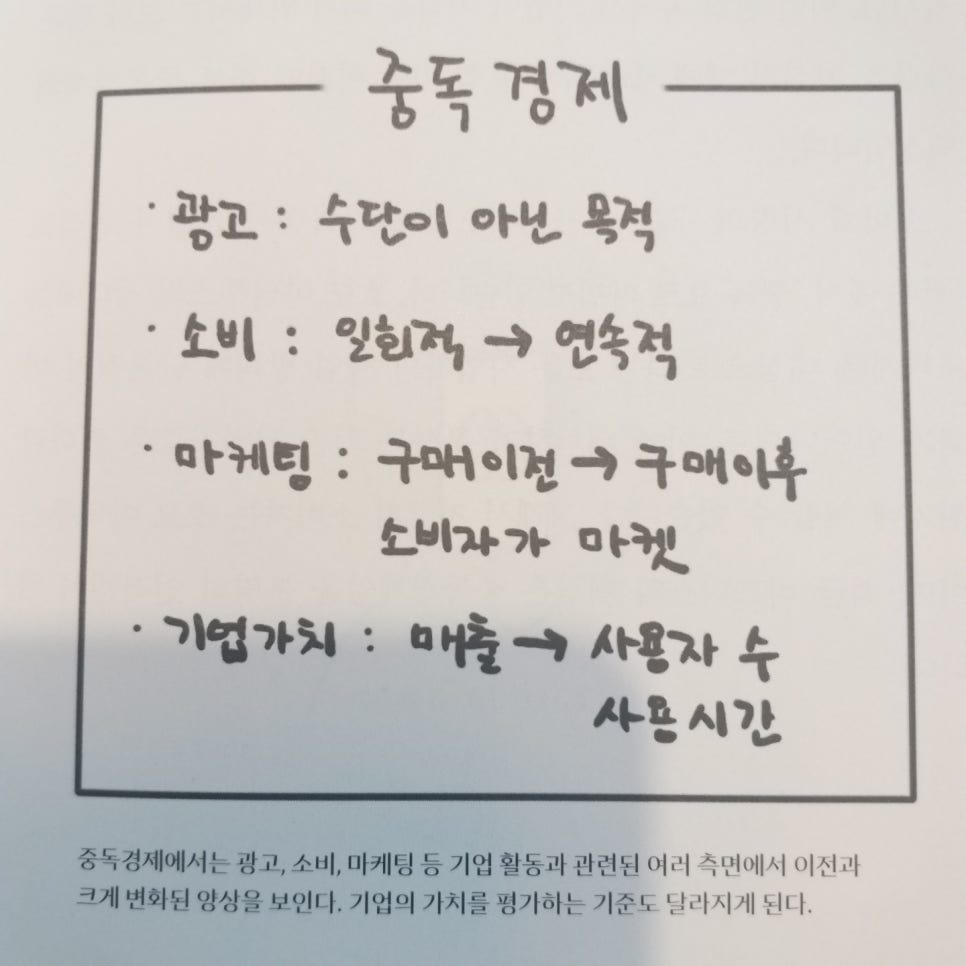 중독경제
· 광고 : 수단이 아닌 목적
· 소비 : 일회적 → 연속적
· 마케팅 : 구매이전 → 구매이후
소비자가 마켓
· 기업가치 : 매출 → 사용자 수
사용시간
중독경제에서는 광고, 소비, 마케팅 등 기업 활동과 관련된 여러 측면에서 이전과
크게 변화된 양상을 보인다. 기업의 가치를 평가하는 기준도 달라지게 된다.